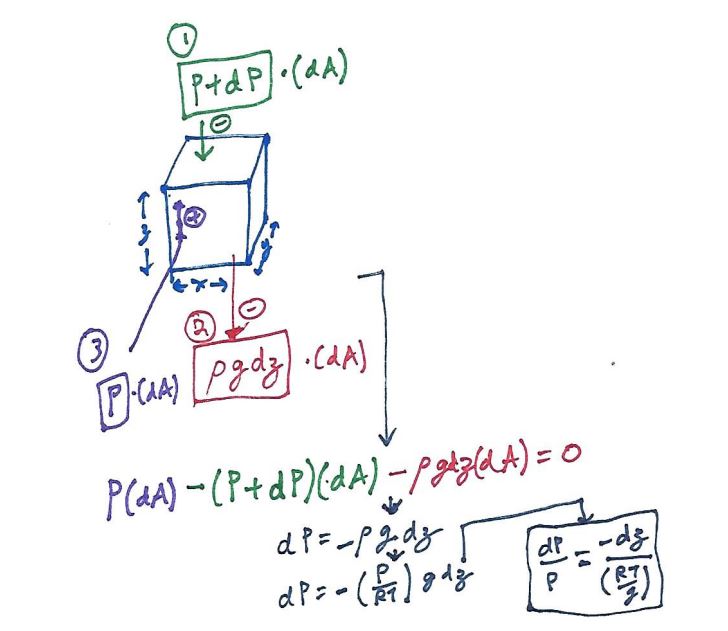 ①
P+dP ·(dA)
⊖
z
⊕
y
x
⊖
②
③
ρgdz ·(dA)
P ·(dA)
P(dA) -(P+dP)(·dA) -ρgdz(dA) = 0
dP = -ρgdz
dP = -(P/RT) gdz
dP/P = -dz/(RT/g)